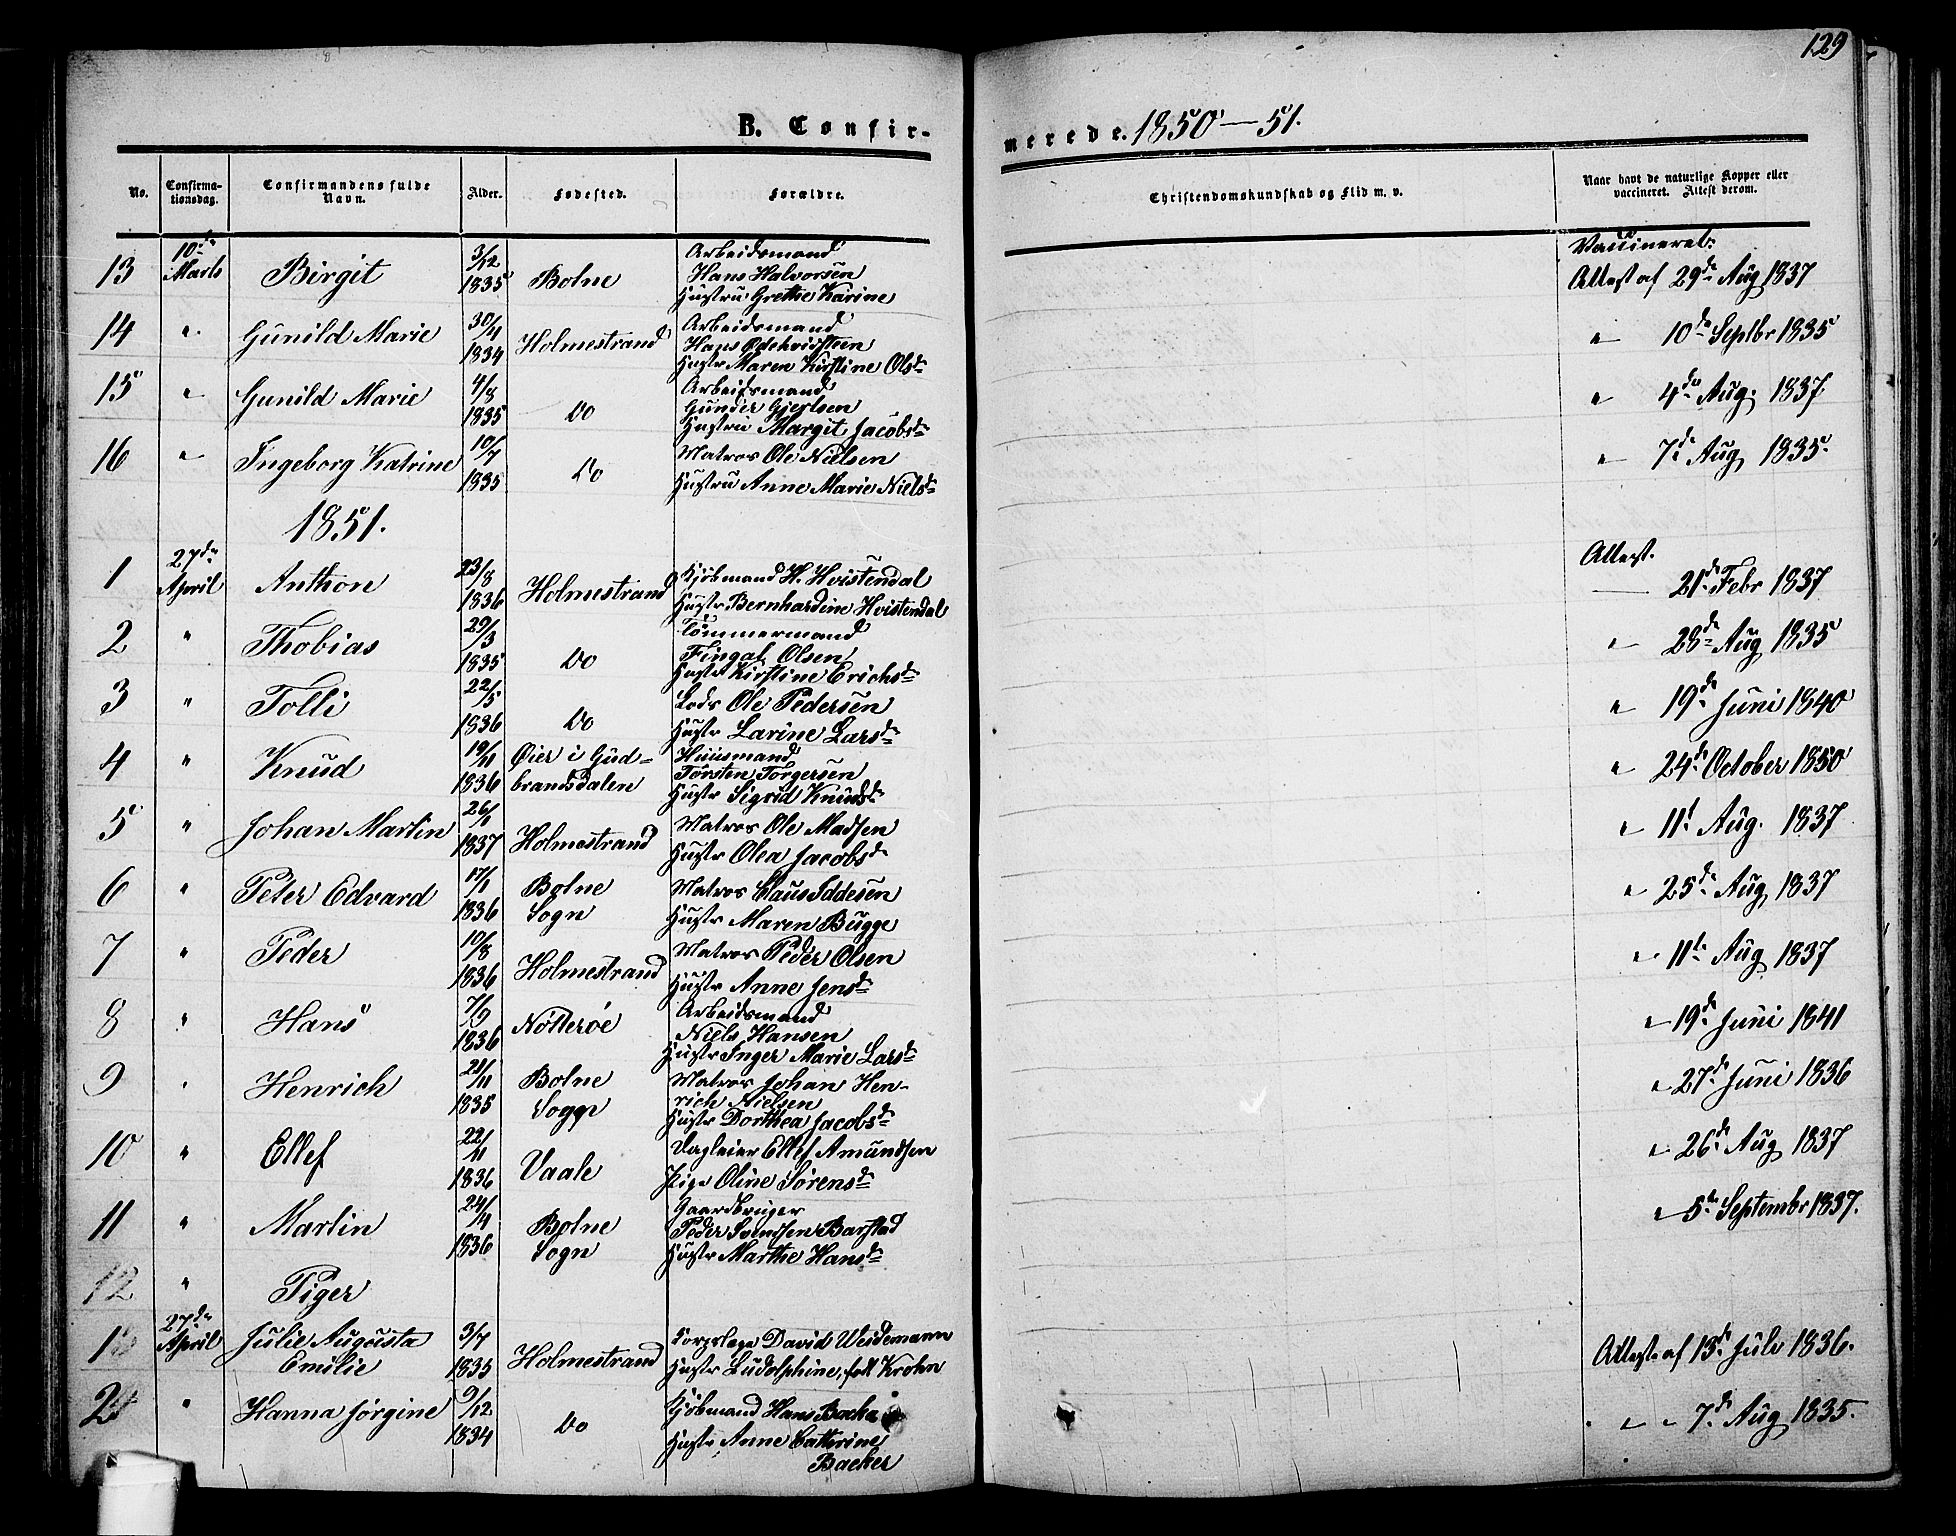 129
B. Confirmerede. 1850–51.
No. Confirmationsdag. Confirmandens fulde Navn. Alder. Fødested. Forældre. Christendomskundskab og Flid m. v. Naar havt de naturlige Kopper eller vaccineret. Attest derom.
13 10de Marts Birgit 3/12 1835 Botne Arbeidsmand Hans Halvorsen Hustru Grethe Karine Vaccineret: Attest af 29de Aug 1837
14 " Gunild Marie 30/11 1834 Holmestrand Arbeidsmand Hans Hustr Maren Kirstine Olsd. " 10de Septbr 1835
15 " Gunild Marie 4/8 1835 Do Arbeidsmand Gunder Gjertsen Hustru Margit Jacobsd. " 4de Aug. 1837
16 " Ingeborg Katrine 10/7 1835 Do Matros Ole Nielsen Hustru Anne Marie Nielsd. " 7de Aug 1835.
1851.
1 27de April Anthon 23/8 1836 Holmestrand Kjøbmand H. Hvistendal Hustr Bernhardine Hvistendal Attest. — 21de Febr 1837
2 " Thobias 29/3 1835 Do Tømmermand Fingal Olsen Hustr Kirstine Erichsd. " 28de Aug 1835
3 " Tolli 22/5 1836 Do Lods Ole Pedersen Hustr Larine Larsd. " 19de Juni 1840
4 " Knud 19/11 1836 Øier i Gudbrandsdalen Huusmand Torsten Torgersen Hustr Sigrid Knudsd. " 24de October 1850
5 " Johan Martin 26/1 1837 Holmestrand Matros Ole Madsen Hustr Olea Jacobsd. " 11t Aug. 1837
6 " Peter Edvard 17/1 1836 Botne Sogn Matros Claus Iddesen Hustr Maren Bugge " 25de Aug, 1837
7 " Peder 10/8 1836 Holmestrand Matros Peder Olsen Hustr Anne Jensd. " 11te Aug 1837
8 " Hans 7/9 1836 Nøtterøe Arbeidsmand Niels Hansen Hustr Inger Marie Larsd. " 19de Juni 1841
9 " Henrich 21/11 1835 Botne Sogn Matros Johan Henrich Nielsen Hustr Dorthea Jacobsd. " 27de Juni 1836
10 " Ellef 22/11 1836 Vaale Dagleier Ellef Amundsen Pige Oline Sørensd. " 26de Aug 1837
11 " Martin 24/4 1836 Botne Sogn Gaardbruger Peder Svendsen Barstad Hustr Marthe Hansd. " 5te Septembr 1837.
12 " Piger
1 27de April Julie Augusta Emilie 3/7 1835 Holmestrand Korpslæge David Weidemann Hustr Ludolphine, født Krohn Attest af 13de Juli 1836.
2 " Hanna Jørgine 9/12 1834 Do Kjøbmand Hans Backe Hustr Anne Cathrine Backer " " 7de Aug 1835.